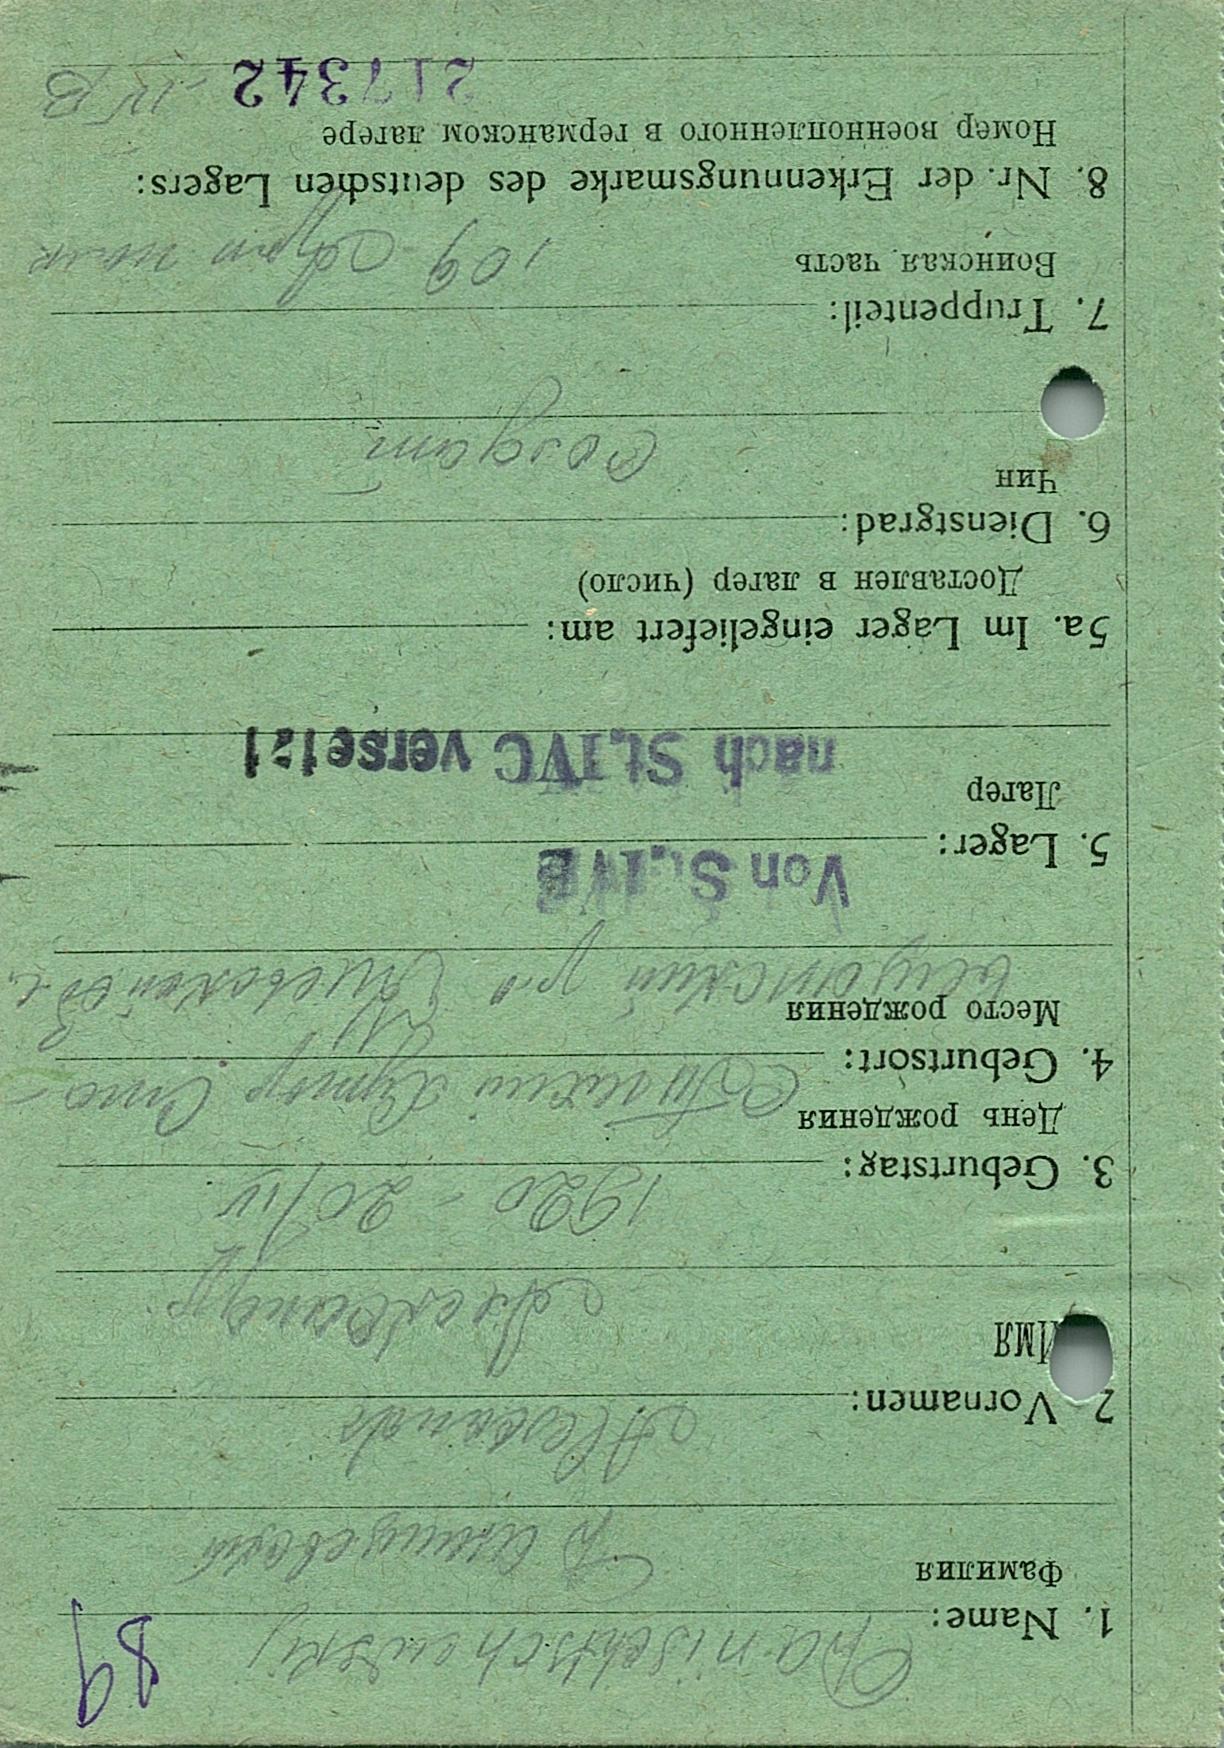 89
1. Name: Danischtscheuskij
Фамилия Данищевский
2 Vornamen: Alexandr
Имя Александр
3. Geburtstag: 1920 - 20/IV
День рождения
4. Geburtsort: хутор
Место рождения р-н Киевской обл.
5. Lager: Von St. IVB
Лагер
nach St. IVC versetzt
5a. Im Lager eingeliefert am:
Доставлен в лагер (число)
6. Dienstgrad:
Чин
солдат
7. Truppenteil:
Воинская часть 109 Арт полк
8. Nr. der Erkennungsmarke des deutschen Lagers:
Номер военнопленного в германском лагере
217342 - IV B